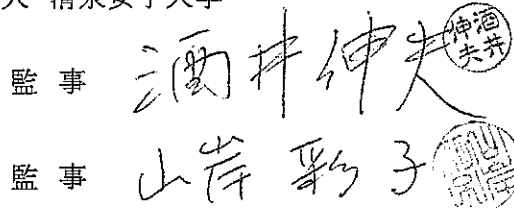 人 清泉女子大学
監 事 酒井伸夫 酒井伸夫
監 事 山岸彩子